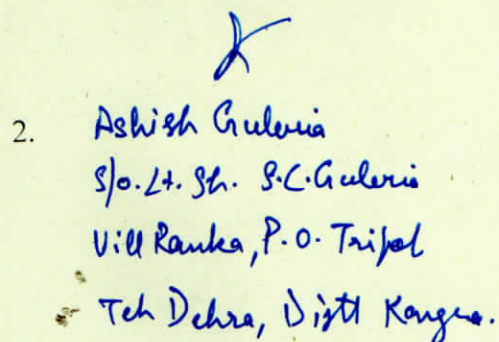 2. Ashish Guleria
S/o. Lt. Sh. S.C. Guleria
Vill Ranka, P.O. Tripal
Teh Dehra, Distt Kangra.